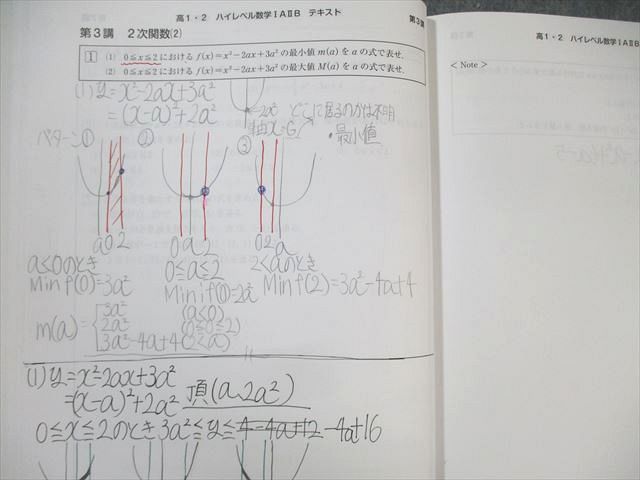 高1・2 ハイレベル数学ⅠAⅡB テキスト
第3講
第3講 2次関数(2)
1 (1) 0≦x≦2における f(x)=x²-2ax+3a² の最小値 m(a) を a の式で表せ.
(2) 0≦x≦2における f(x)=x²-2ax+3a² の最大値 M(a) を a の式で表せ.
(1) y=x²-2ax+3a²
=(x-a)²+2a²
2a² どこに居るのかは不明
軸x=G
・最小値
パターン① ② ③
a 0 2 0 a 2 0 2 a
a<0のとき 0≦a≦2 2<aのとき
Min f(0)=3a² Min f(0)=2a² Min f(2)=3a²-4a+4
m(a)={3a² (a<0)
2a² (0≦a≦2)
3a²-4a+4 (2<a)
(1) y=x²-2ax+3a²
=(x-a)²+2a² 頂(a,2a²)
0≦x≦2のとき 3a²≦y≦4-4a+12 -4a+16
高1・2 ハイレベル数学ⅠAⅡB テキスト
< Note >